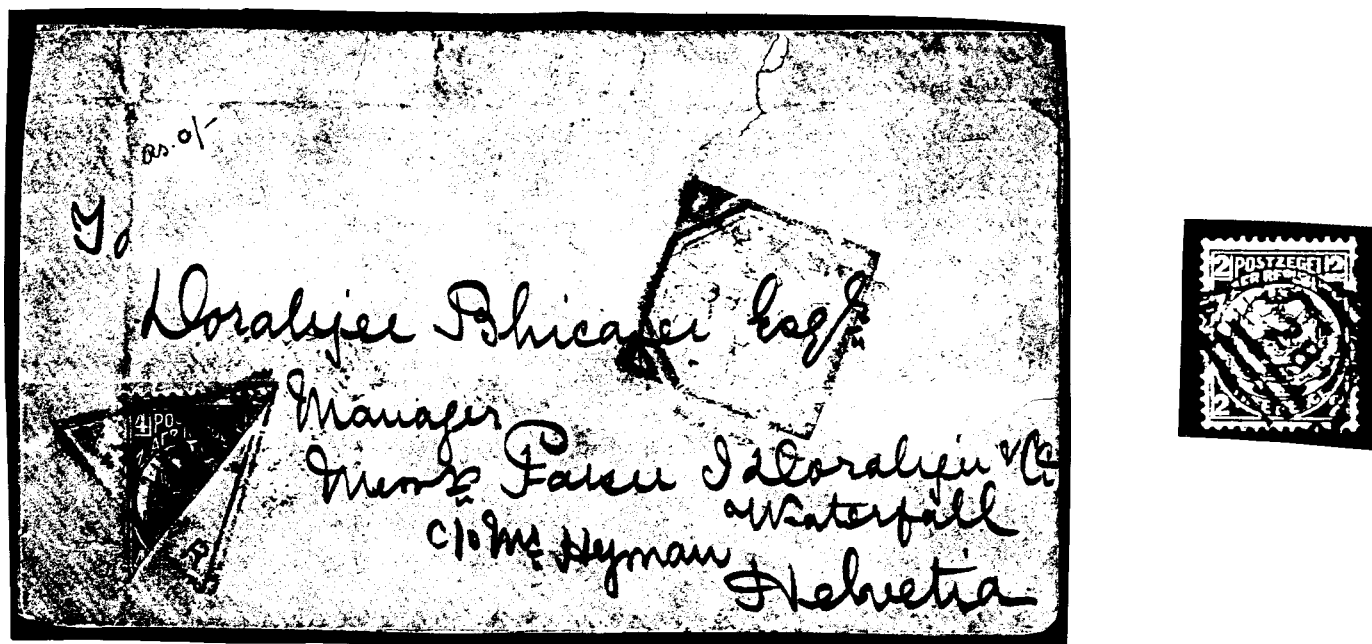 as. o/-
To
Dorabjee Bhicajee Esqr
Manager
Messrs Parsee I Dorabjee & Co
Waterfall
c/o Mr Hyman
Helvetia
4 PO-
2 POSTZEGEL 2
2